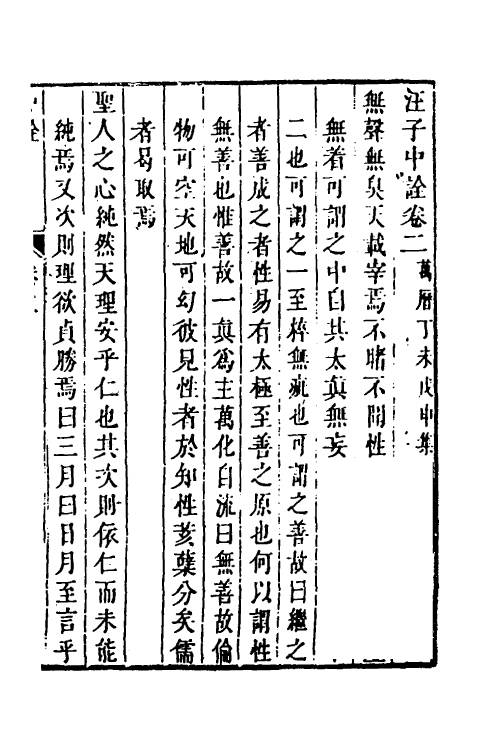 汪子中詮卷二 萬曆丁未戊申集
無聲無臭天載宰焉不睹不聞性
無着可謂之中自其太真無妄
二也可謂之一至粹無疵也可謂之善故曰繼之
者善成之者性易有太極至善之原也何以謂性
無善也惟善故一真爲主萬化自流曰無善故倫
物可空天地可幻彼見性者於知性亥葉分矣儒
者曷取焉
聖人之心純然天理安乎仁也其次則依仁而未能
純焉又次則理欲貞勝焉曰三月曰日月至言乎